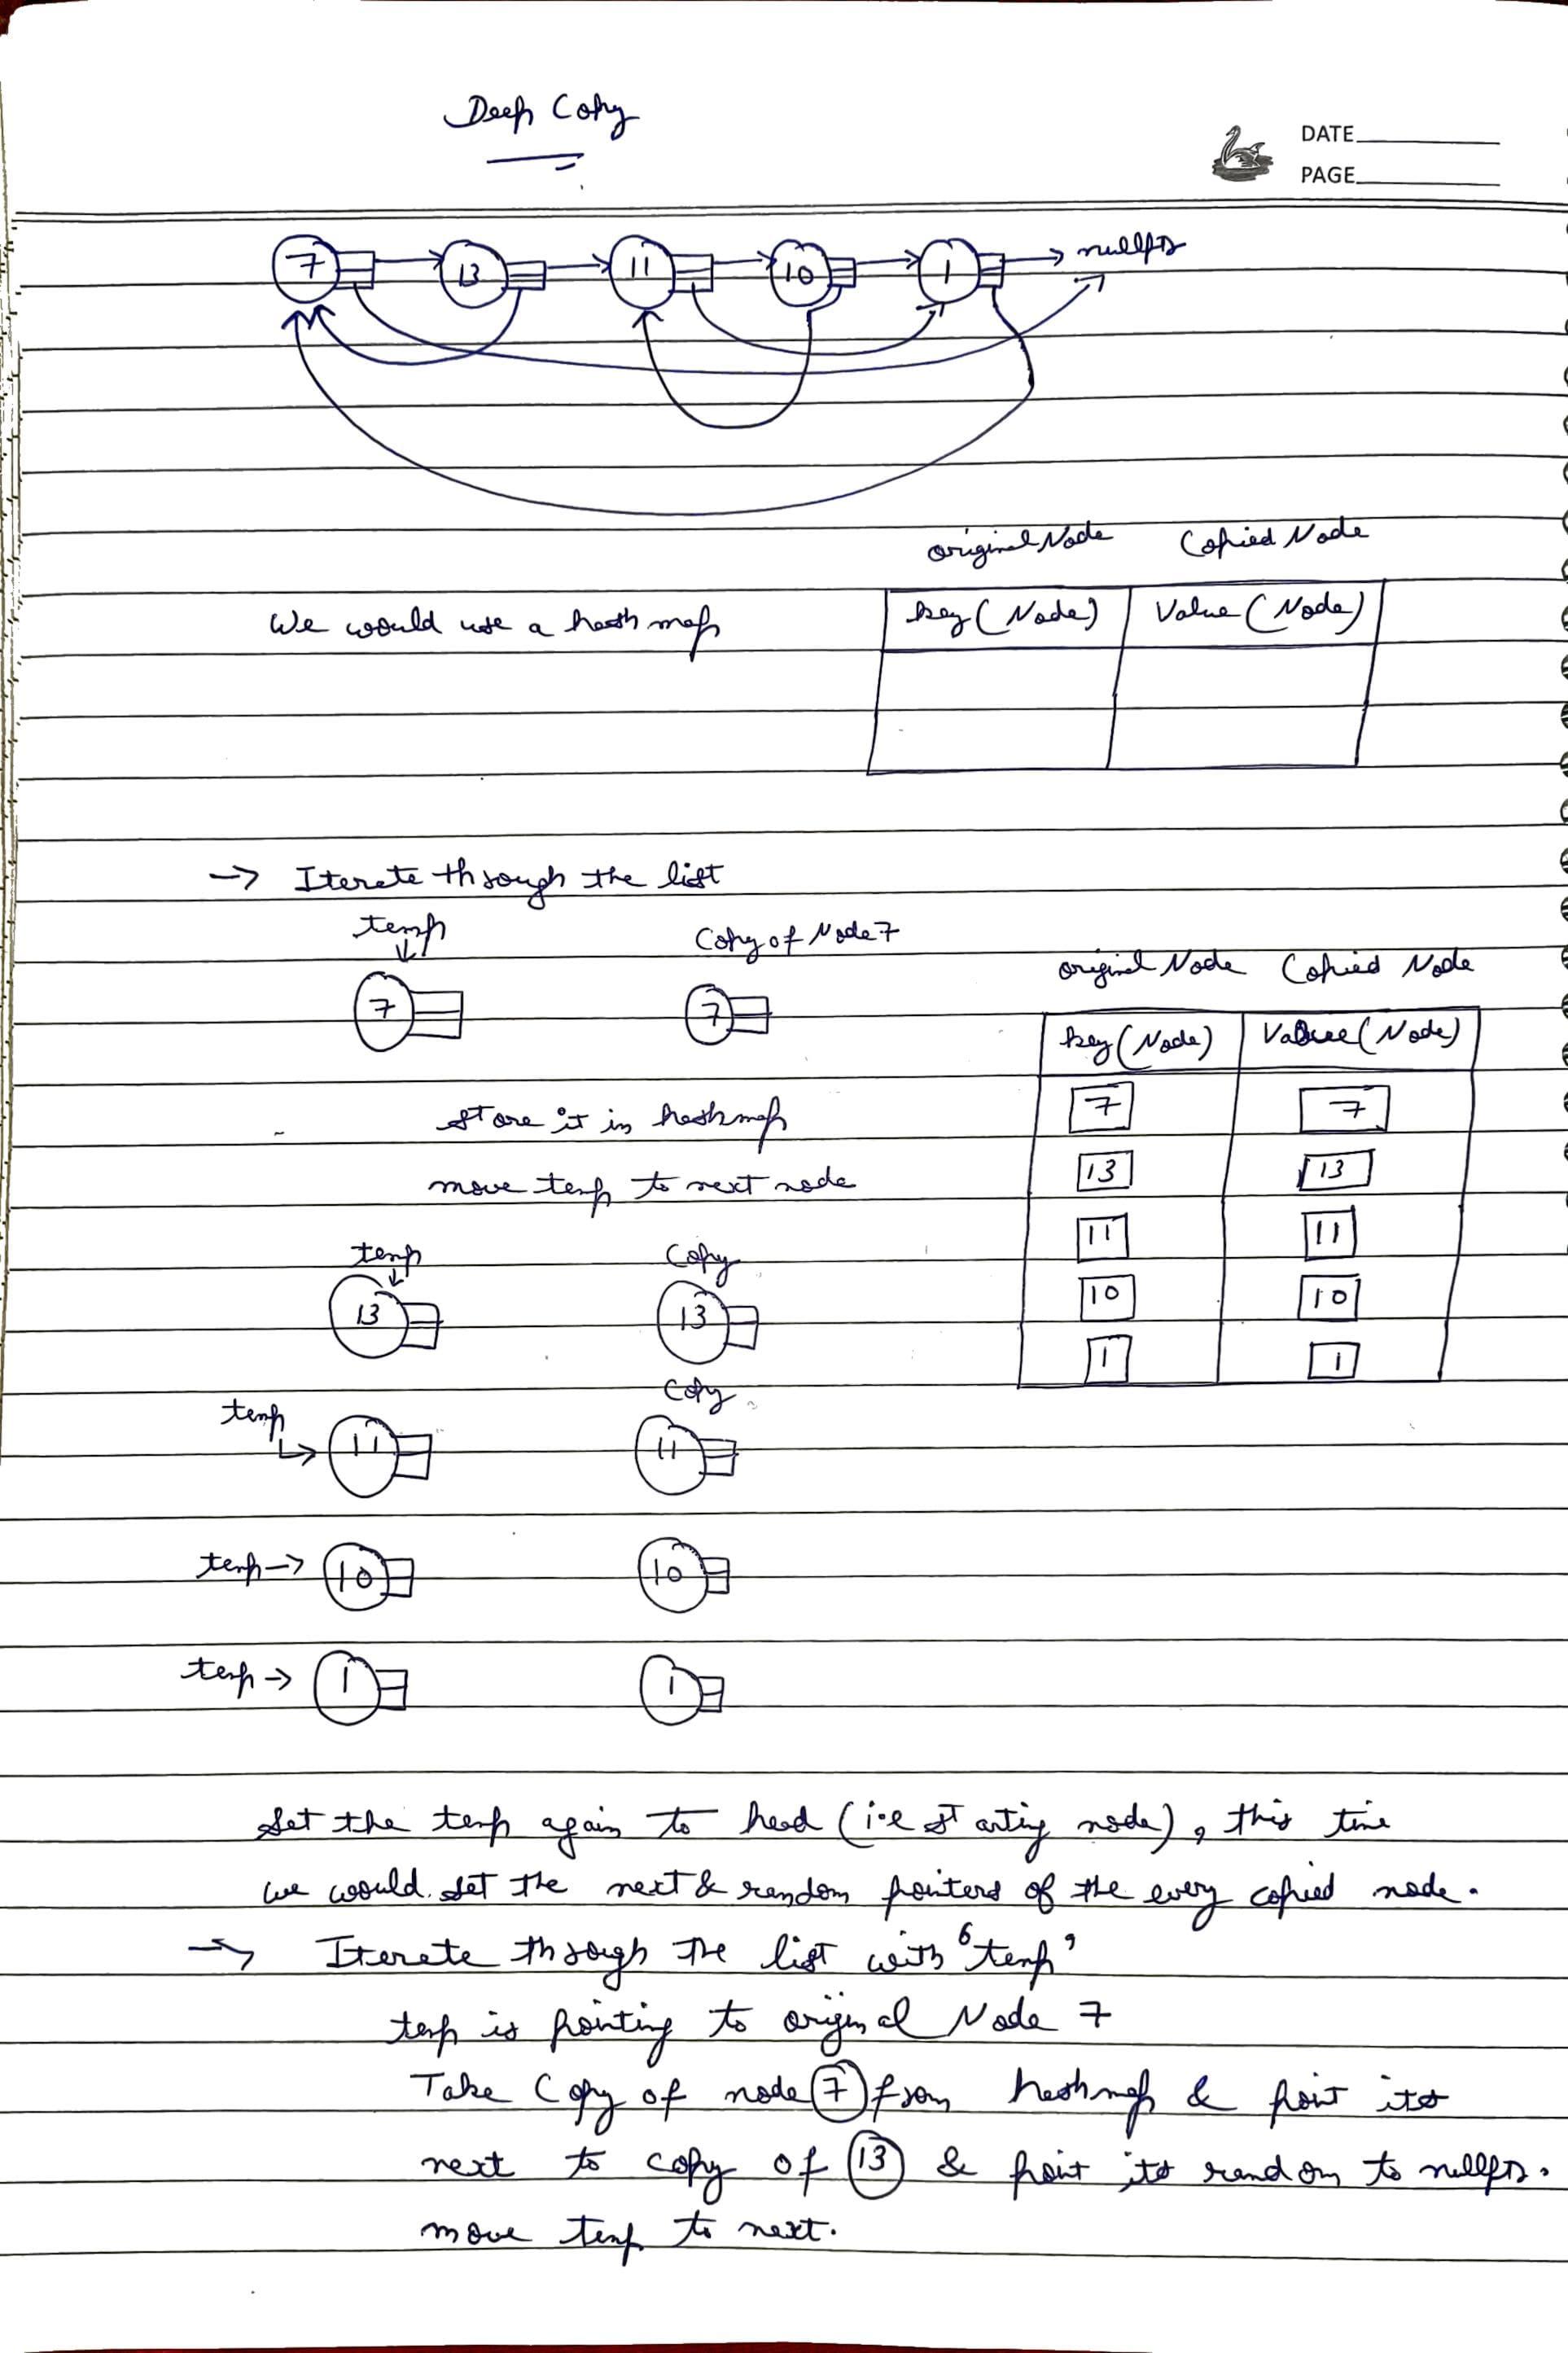 Deep Copy
DATE
PAGE
7 13 11 10 1 nullptr
original Node Copied Node
We would use a hash map
key (Node) Value (Node)
→ Iterate through the list
temp Copy of Node 7
7 7
original Node Copied Node
key (Node) Value (Node)
7 7
13 13
11 11
10 10
1 1
store it in hashmap
move temp to next node
temp Copy
13 13
temp Copy
11 11
temp → 10 10
temp → 1 1
Set the temp again to head (i.e starting node), this time
we would set the next & random pointers of the every copied node.
→ Iterate through the list with 'temp'
temp is pointing to original Node 7
Take Copy of node 7 from hashmap & point its
next to copy of 13 & point its random to nullptr.
move temp to next.